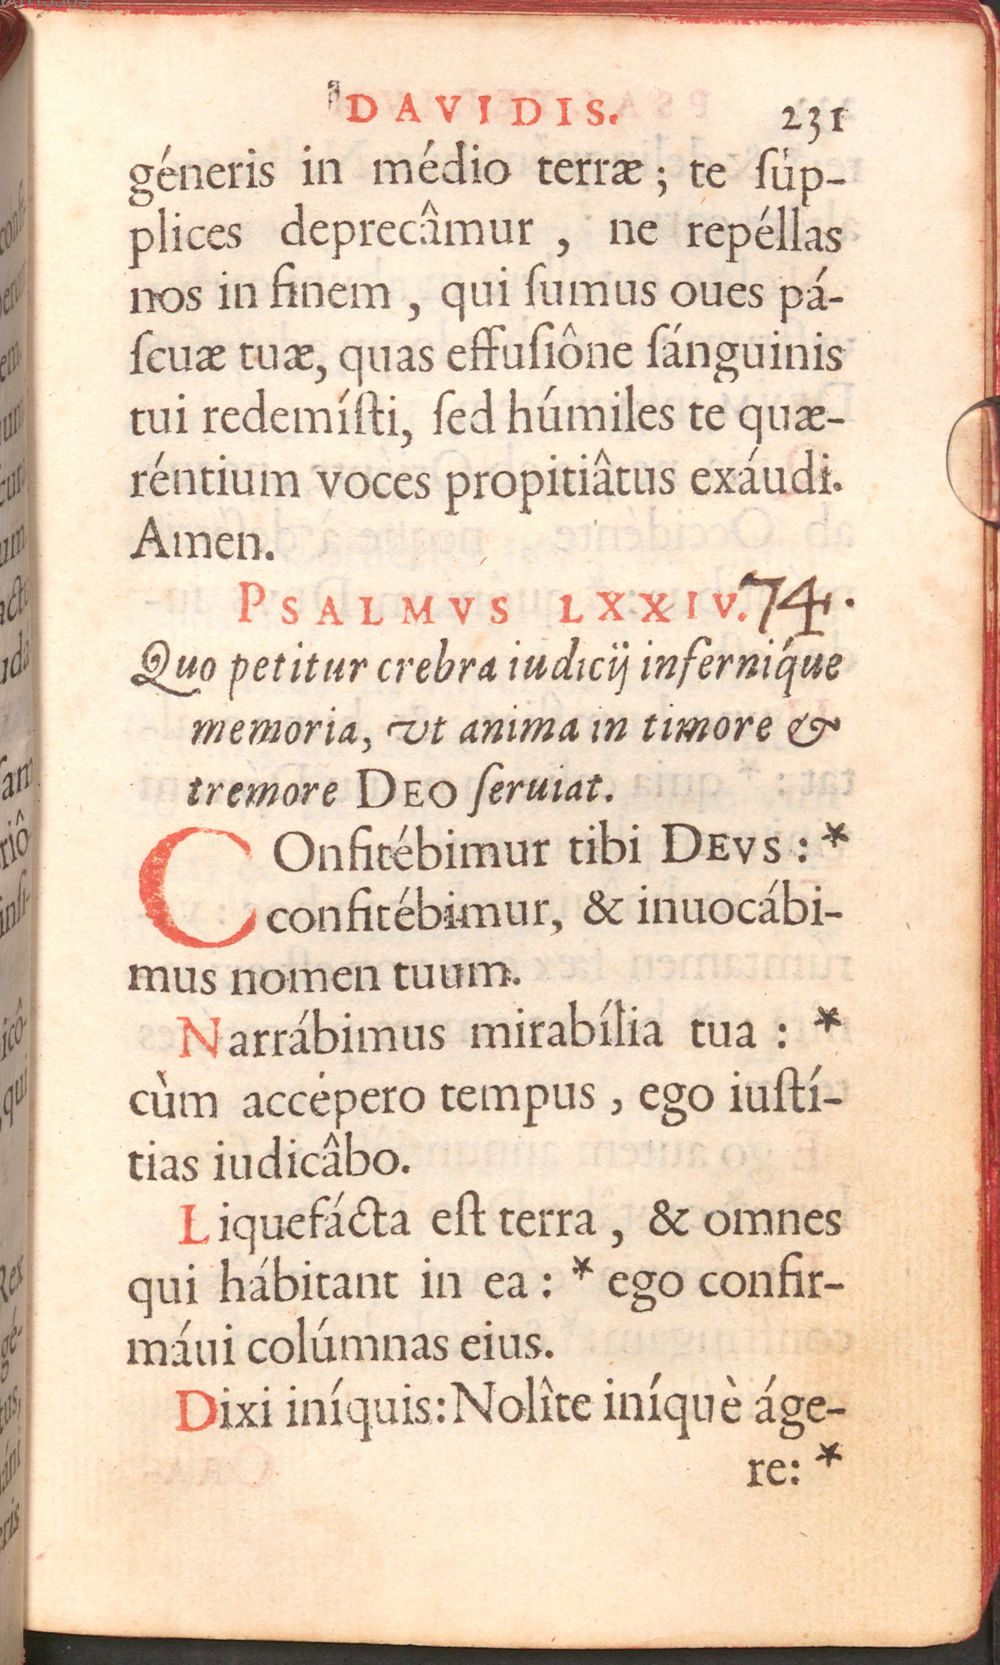 DAVIDIS. 231
géneris in médio terræ; te ſúp-
plices deprecâmur , ne repéllas
nos in finem , qui ſumus oues pá-
ſcuæ tuæ, quas effuſiône ſánguinis
tui redemíſti, ſed húmiles te quæ-
réntium voces propitiâtus exáudi.
Amen.
PSALMVS LXXIV. 74.
Quo petitur crebra iudicij inferníque
memoria, vt anima in timore &
tremore DEO ſeruiat.
COnfitébimur tibi DEVS : *
confitébimur, & inuocábi-
mus nomen tuum.
Narrábimus mirabília tua : *
cùm accépero tempus , ego iuſtí-
tias iudicâbo.
Liquefácta eſt terra , & omnes
qui hábitant in ea : * ego confir-
máui colúmnas eius.
Dixi iníquis: Nolîte iníquè áge-
re: *